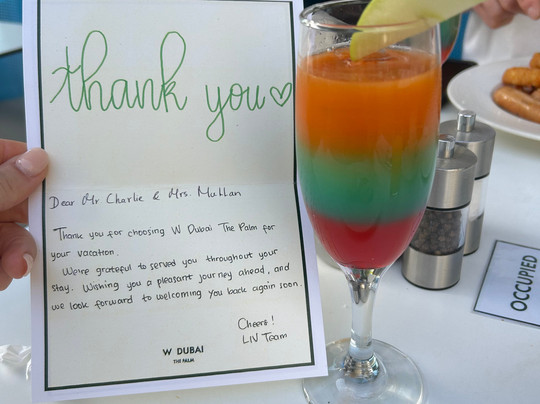 thank you
Dear Mr Charlie & Mrs. Mullan
Thank you for choosing W Dubai The Palm for
your vacation.
We're grateful to served you throughout your
stay. Wishing you a pleasant journey ahead, and
we look forward to welcoming you back again soon.
Cheers!
LIV Team
W DUBAI
THE PALM
OCCUPIED